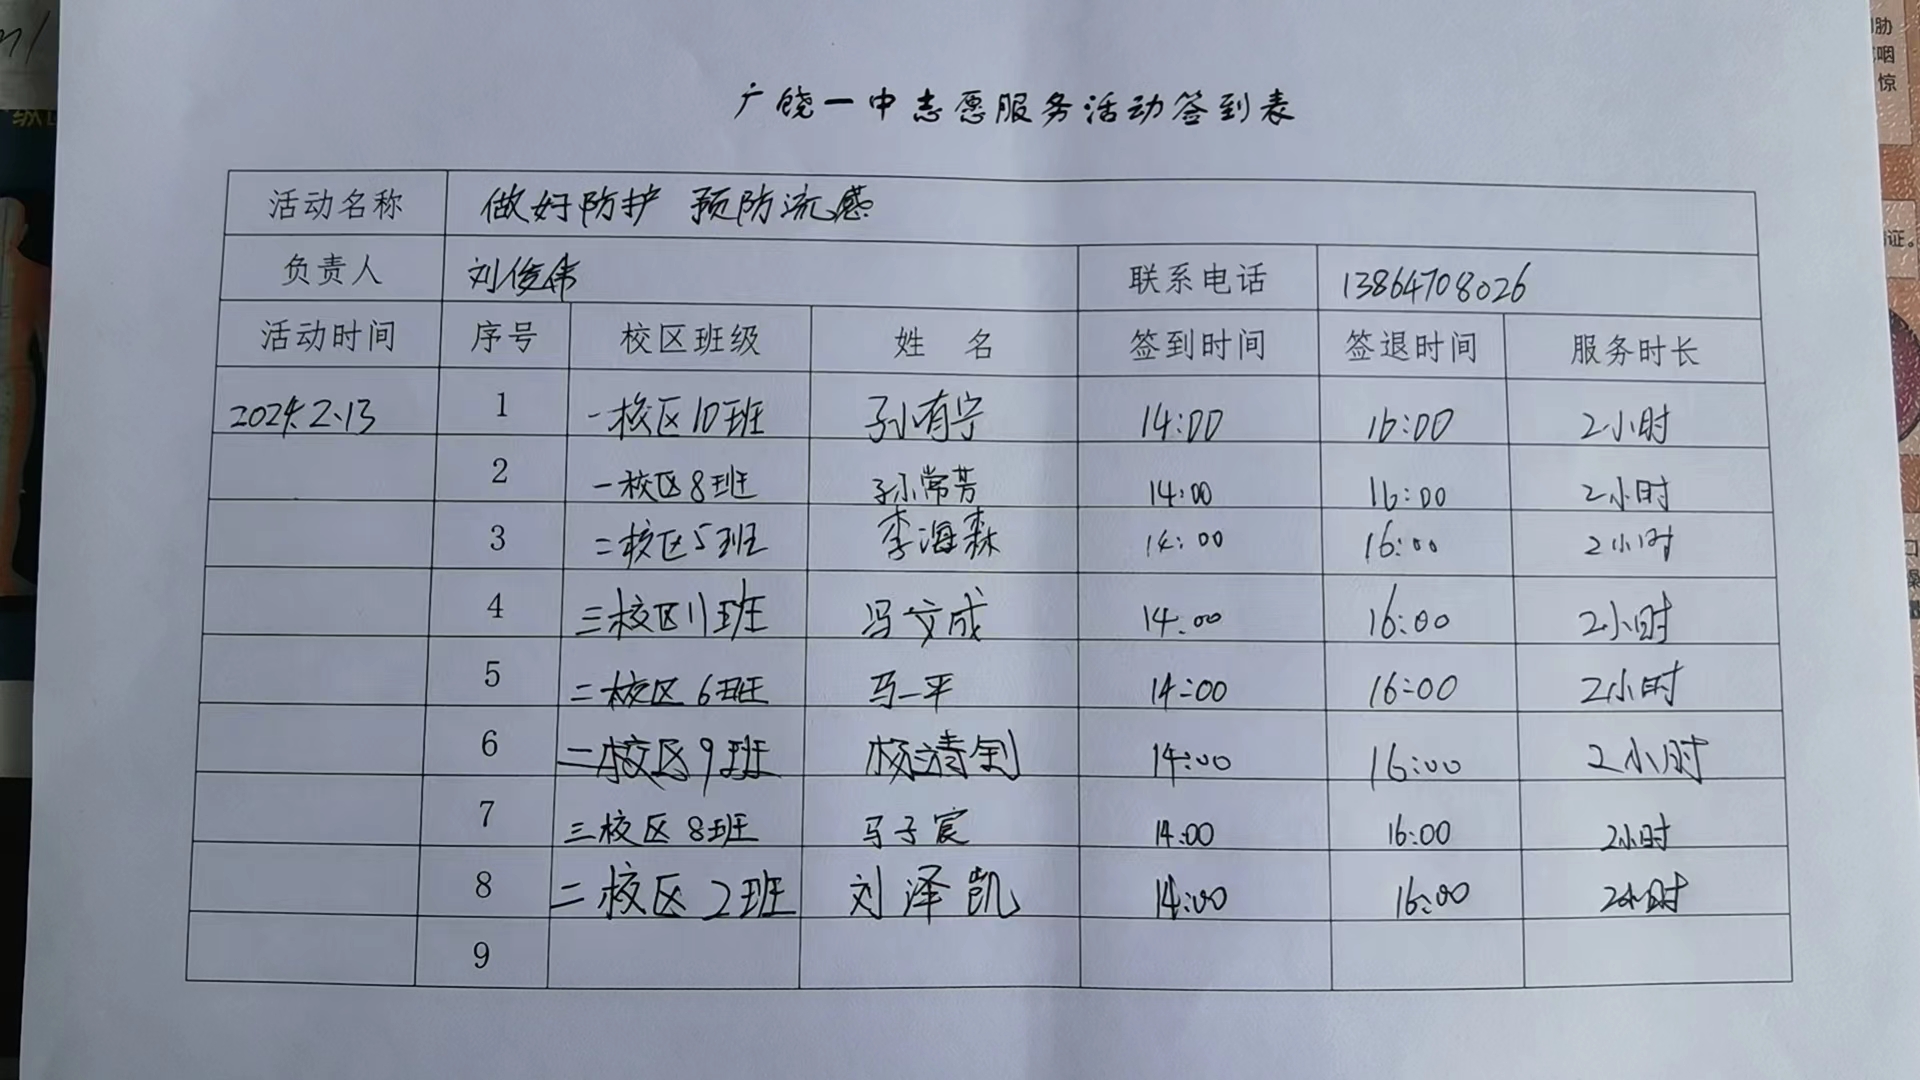 广饶一中志愿服务活动签到表
活动名称 做好防护 预防流感
负责人 刘俊伟 联系电话 13864708026
活动时间 序号 校区班级 姓 名 签到时间 签退时间 服务时长
2024.2.13 1 一校区10班 孙有宁 14:00 16:00 2小时
2 一校区8班 孙常芳 14:00 16:00 2小时
3 二校区5班 李海森 14:00 16:00 2小时
4 三校区11班 冯文成 14:00 16:00 2小时
5 二校区6班 马一平 14:00 16:00 2小时
6 二校区9班 杨靖钊 14:00 16:00 2小时
7 三校区8班 马子宸 14:00 16:00 2小时
8 二校区2班 刘泽凯 14:00 16:00 2小时
9